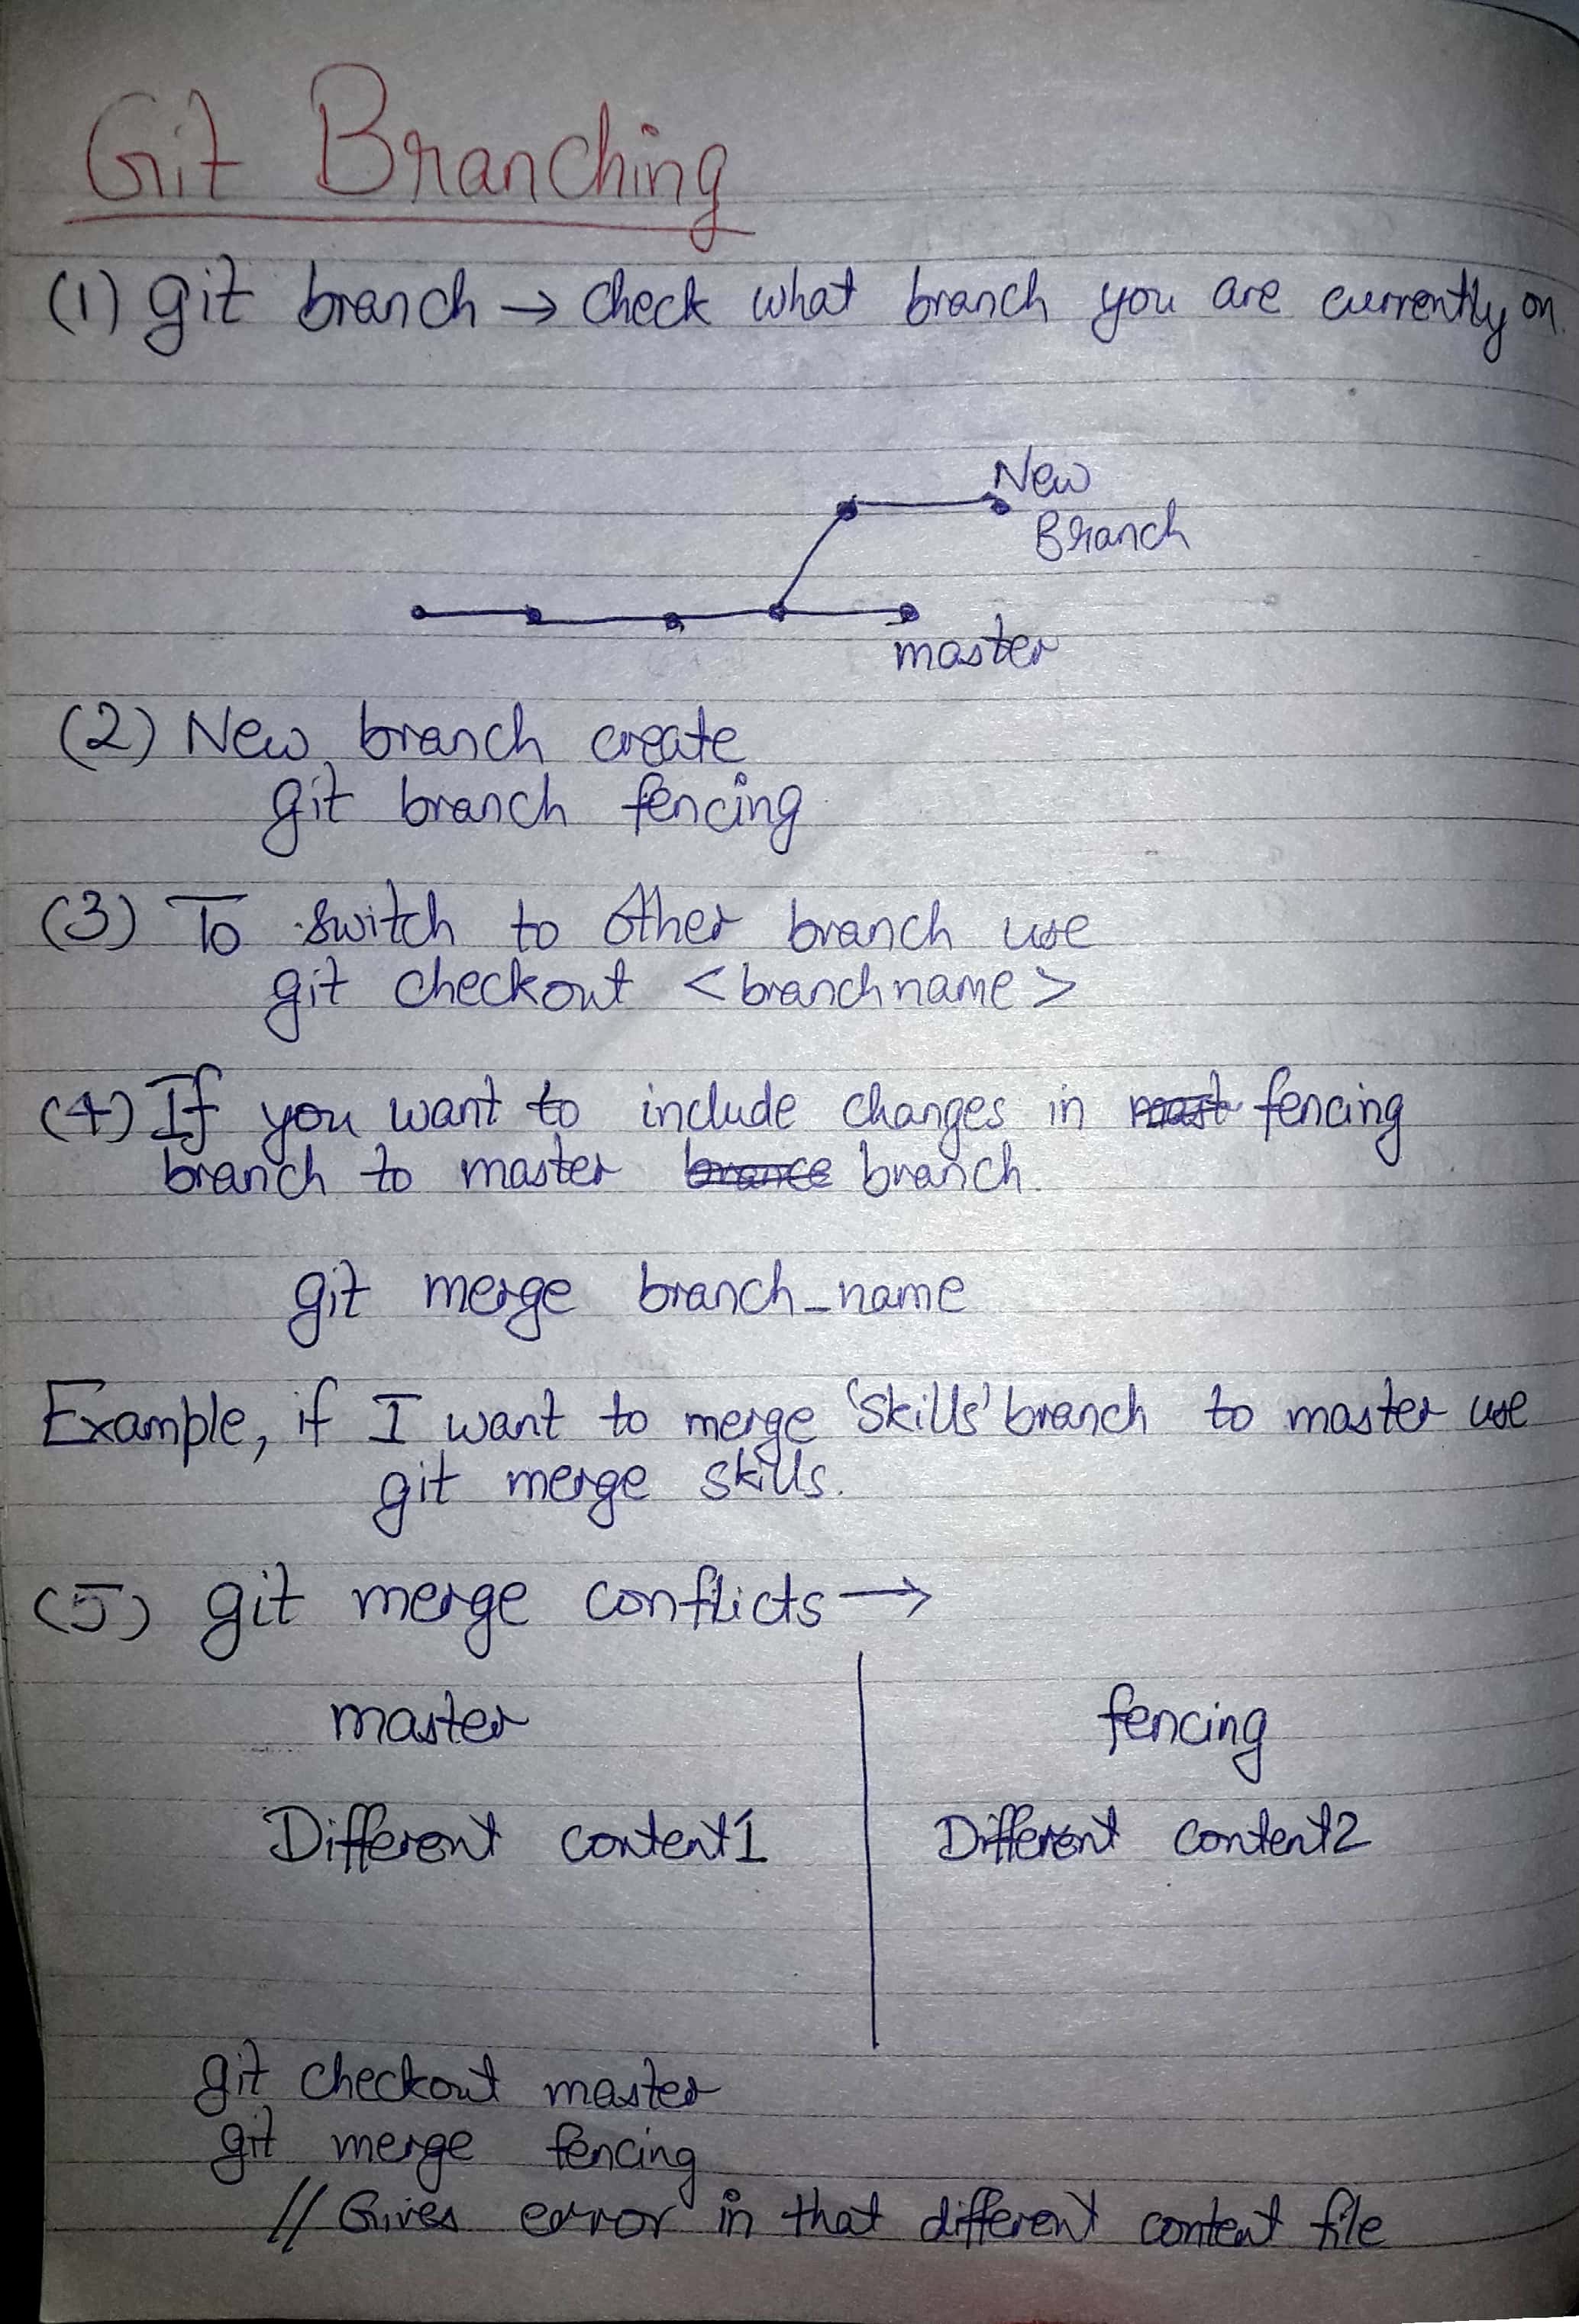 Git Branching
(1) git branch → check what branch you are currently on.
New
Branch
master
(2) New branch create
git branch fencing
(3) To switch to other branch use
git checkout <branchname>
(4) If you want to include changes in mast fencing
branch to master brance branch.
git merge branch_name
Example, if I want to merge 'skills' branch to master use
git merge skills.
(5) git merge conflicts →
master fencing
Different content1 Different content2
git checkout master
git merge fencing
// Gives error in that different content file